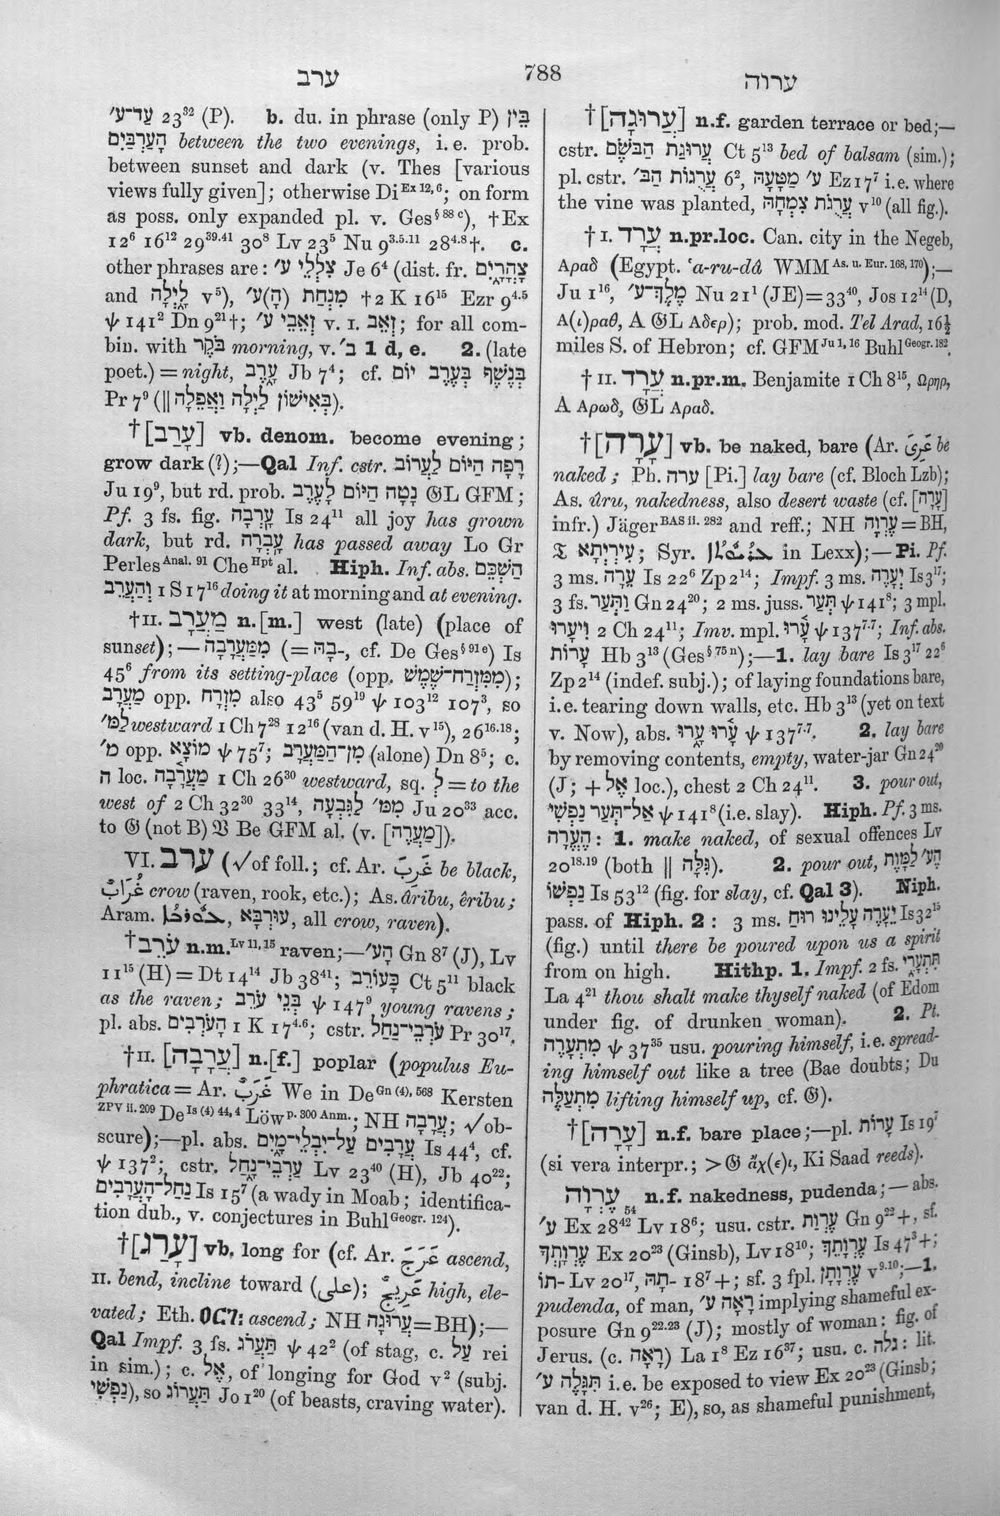 ערב
788
ערוה
עַד־ע׳ 23³² (P). b. du. in phrase (only P) בֵּין
הָעַרְבַּיִם between the two evenings, i. e. prob.
between sunset and dark (v. Thes [various
views fully given]; otherwise Di Ex 12, 6; on form
as poss. only expanded pl. v. Ges § 88 c), †Ex
12⁶ 16¹² 29³⁹·⁴¹ 30⁸ Lv 23⁵ Nu 9³·⁵·¹¹ 28⁴·⁸†. c.
other phrases are: צִלְלֵי ע׳ Je 6⁴ (dist. fr. צָהֳרַיִם
and לַיְלָה v⁵), מִנְחַת (הָ)ע׳ †2 K 16¹⁵ Ezr 9⁴·⁵
ψ 141² Dn 9²¹†; זְאֵבֵי ע׳ v. I. זְאֵב; for all com-
bin. with בֹּקֶר morning, v. ב׳ 1 d, e. 2. (late
poet.) = night, עָרֶב Jb 7⁴; cf. בְּנֶשֶׁף בְּעֶרֶב יוֹם
Pr 7⁹ (|| בְּאִישׁוֹן לַיְלָה וַאֲפֵלָה).
†[עָרַב] vb. denom. become evening;
grow dark (?);—Qal Inf. cstr. רָפָה הַיּוֹם לַעֲרוֹב
Ju 19⁹, but rd. prob. נָטָה הַיּוֹם לָעֶרֶב 𝔊L GFM;
Pf. 3 fs. fig. עָרְבָה Is 24¹¹ all joy has grown
dark, but rd. עָבְרָה has passed away Lo Gr
Perles Anal. 91 Che Hpt al. Hiph. Inf. abs. הַשְׁכֵּם
וְהַעֲרֵב 1 S 17¹⁶ doing it at morning and at evening.
†II. מַעֲרָב n.[m.] west (late) (place of
sunset);—מִמַּעֲרָבָה (= בָהּ-, cf. De Ges § 91 e) Is
45⁶ from its setting-place (opp. מִמִּזְרַח־שֶׁמֶשׁ);
מַעֲרָב opp. מִזְרָח also 43⁵ 59¹⁹ ψ 103¹² 107³, so
לַמּ׳ westward 1 Ch 7²⁸ 12¹⁶ (van d. H. v¹⁵), 26¹⁶·¹⁸;
מ׳ opp. מוֹצָא ψ 75⁷; מִן־הַמַּעֲרָב (alone) Dn 8⁵; c.
ה loc. מַעֲרָבָה 1 Ch 26³⁰ westward, sq. לְ = to the
west of 2 Ch 32³⁰ 33¹⁴, מִמּ׳ לַגִּבְעָה Ju 20³³ acc.
to 𝔊 (not B) 𝔙 Be GFM al. (v. [מַעֲרֶה]).
VI. ערב (√ of foll.; cf. Ar. غَرِبَ be black,
غُرَابٌ crow (raven, rook, etc.); As. âribu, êribu;
Aram. ܥܘܪܒܐ, עוּרְבָא, all crow, raven).
†עֹרֵב n.m. Lv 11, 15 raven;—הָע׳ Gn 8⁷ (J), Lv
11¹⁵ (H) = Dt 14¹⁴ Jb 38⁴¹; כָּעוֹרֵב Ct 5¹¹ black
as the raven; בְּנֵי עֹרֵב ψ 147⁹ young ravens;
pl. abs. הָעֹרְבִים 1 K 17⁴·⁶; cstr. עֹרְבֵי־נַחַל Pr 30¹⁷.
†II. [עֲרָבָה] n.[f.] poplar (populus Eu-
phratica = Ar. غَرَبٌ We in De Gn (4), 568 Kersten
ZPV ii. 209 De Is (4) 44, 4 Löw p. 300 Anm.; NH עֲרָבָה; √ob-
scure);—pl. abs. עֲרָבִים עַל־יִבְלֵי־מָיִם Is 44⁴, cf.
ψ 137²; cstr. עַרְבֵי־נָחַל Lv 23⁴⁰ (H), Jb 40²²;
נַחַל־הָעֲרָבִים Is 15⁷ (a wady in Moab; identifica-
tion dub., v. conjectures in Buhl Geogr. 124).
†[עָרַג] vb. long for (cf. Ar. عَرَجَ ascend,
II. bend, incline toward (على); عَرِيجٌ high, ele-
vated; Eth. ዐርገ: ascend; NH עֲרוּגָה = BH);—
Qal Impf. 3 fs. תַּעֲרֹג ψ 42² (of stag, c. עַל rei
in sim.); c. אֶל, of longing for God v² (subj.
נַפְשִׁי), so תַּעֲרוֹג Jo 1²⁰ (of beasts, craving water).
†[עֲרוּגָה] n.f. garden terrace or bed;—
cstr. עֲרוּגַת הַבֹּשֶׂם Ct 5¹³ bed of balsam (sim.);
pl. cstr. עֲרֻגוֹת הַב׳ 6², ע׳ מַטָּעָהּ Ez 17⁷ i.e. where
the vine was planted, עֲרֻגֹת צִמְחָהּ v¹⁰ (all fig.).
†I. עֲרָד n.pr.loc. Can. city in the Negeb,
Αραδ (Egypt. ‘a-ru-dâ WMM As. u. Eur. 168, 170);—
Ju 1¹⁶, מֶלֶךְ־ע׳ Nu 21¹ (JE) = 33⁴⁰, Jos 12¹⁴ (D,
Α(ι)ραθ, A 𝔊L Αδερ); prob. mod. Tel Arad, 16½
miles S. of Hebron; cf. GFM Ju 1, 16 Buhl Geogr. 182.
†II. עֲרָד n.pr.m. Benjamite 1 Ch 8¹⁵, Ωρηρ,
A Αρωδ, 𝔊L Αραδ.
†[עָרָה] vb. be naked, bare (Ar. عَرِىَ be
naked; Ph. ערה [Pi.] lay bare (cf. Bloch Lzb);
As. ûru, nakedness, also desert waste (cf. [עָרָה]
infr.) Jäger BAS ii. 282 and reff.; NH עֶרְוָה = BH,
𝔗 עִירְיְתָא; Syr. in Lexx);—Pi. Pf.
3 ms. עֵרָה Is 22⁶ Zp 2¹⁴; Impf. 3 ms. יְעָרֶה Is 3¹⁷;
3 fs. וַתְּעַר Gn 24²⁰; 2 ms. juss. תְּעַר ψ 141⁸; 3 mpl.
וַיְעָרוּ 2 Ch 24¹¹; Imv. mpl. עָרוּ ψ 137⁷·⁷; Inf. abs.
עָרוֹת Hb 3¹³ (Ges § 75 n);—1. lay bare Is 3¹⁷ 22⁶
Zp 2¹⁴ (indef. subj.); of laying foundations bare,
i.e. tearing down walls, etc. Hb 3¹³ (yet on text
v. Now), abs. עָרוּ עָרוּ ψ 137⁷·⁷. 2. lay bare
by removing contents, empty, water-jar Gn 24²⁰
(J; + אֶל loc.), chest 2 Ch 24¹¹. 3. pour out,
אַל־תְּעַר נַפְשִׁי ψ 141⁸ (i.e. slay). Hiph. Pf. 3 ms.
הֶעֱרָה: 1. make naked, of sexual offences Lv
20¹⁸·¹⁹ (both || גִּלָּה). 2. pour out, הֶע׳ לַמָּוֶת
נַפְשׁוֹ Is 53¹² (fig. for slay, cf. Qal 3). Niph.
pass. of Hiph. 2: 3 ms. יֵעָרֶה עָלֵינוּ רוּחַ Is 32¹⁵
(fig.) until there be poured upon us a spirit
from on high. Hithp. 1. Impf. 2 fs. תִּתְעָרִי
La 4²¹ thou shalt make thyself naked (of Edom
under fig. of drunken woman). 2. Pt.
מִתְעָרֶה ψ 37³⁵ usu. pouring himself, i.e. spread-
ing himself out like a tree (Bae doubts; Du
מִתְעַלֶּה lifting himself up, cf. 𝔊).
†[עָרָה] n.f. bare place;—pl. עָרוֹת Is 19⁷
(si vera interpr.; > 𝔊 ἄχ(ε)ι, Ki Saad reeds).
עֶרְוָה₅₄ n.f. nakedness, pudenda;—abs.
ע׳ Ex 28⁴² Lv 18⁶; usu. cstr. עֶרְוַת Gn 9²²+, sf.
עֶרְוָתְךָ Ex 20²³ (Ginsb), Lv 18¹⁰; עֶרְוָתֵךְ Is 47³+;
תוֹ- Lv 20¹⁷, תָהּ- 18⁷+; sf. 3 fpl. עֶרְוָתָן v⁹·¹⁰;—1.
pudenda, of man, רָאָה ע׳ implying shameful ex-
posure Gn 9²²·²³ (J); mostly of woman: fig. of
Jerus. (c. רָאָה) La 1⁸ Ez 16³⁷; usu. c. גלה: lit.
תִּגָּלֶה ע׳ i.e. be exposed to view Ex 20²³ (Ginsb;
van d. H. v²⁶; E), so, as shameful punishment,